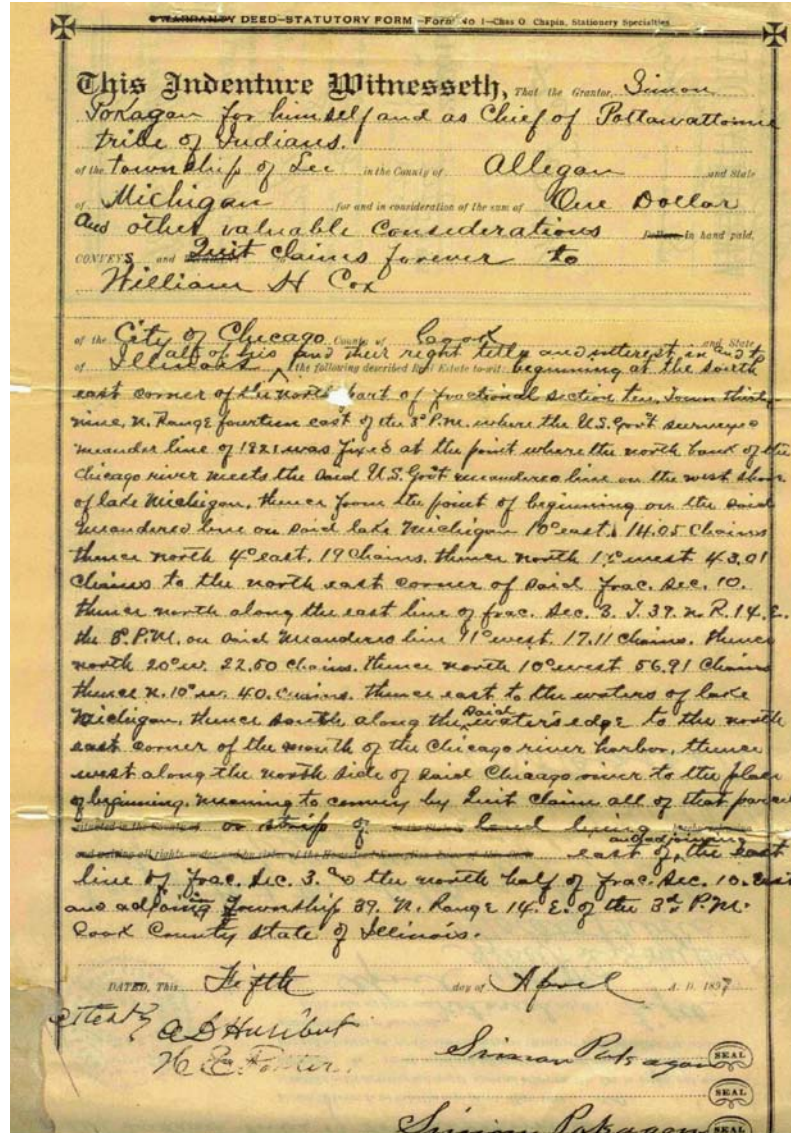 WARRANTY DEED—STATUTORY FORM—Form No 1—Chas O. Chapin, Stationery Specialties
This Indenture Witnesseth, That the Grantor, Simon
Pokagan for himself and as Chief of Pottawattomie
tribe of Indians.
of the township of Lee in the County of Allegan and State
of Michigan for and in consideration of the sum of One Dollar
and other valuable considerations Dollars in hand paid,
CONVEYS and Quit Claims forever to
William H Cox
of the City of Chicago County of Cook and State
all of his and their right title and interest in and to
of Illinois the following described Real Estate to-wit: beginning at the south
east corner of the north part of fractional section ten, Town thirty
nine, N. Range fourteen east of the 3d P.M. where the U.S. Gov't surveyed
meander line of 1821 was fixed at the point where the north bank of the
Chicago river meets the said U.S. Gov't meandered line on the west shore
of lake Michigan, thence from the point of beginning on the said
meandered line on said lake Michigan 10° east 14.05 Chains
thence north 4° east. 19 Chains. thence north 1° west 43.01
Chains to the north east corner of said frac. sec. 10.
thence north along the east line of frac. sec. 3. T. 39. N. R. 14. E.
the P.M. on said meandered line 11° west. 17.11 Chains. thence
north 20° w. 22.50 Chains. thence north 10° west 56.91 Chains
thence n. 10° w. 40. Chains. thence east to the waters of lake
Michigan, thence south along the said water's edge to the north
east corner of the mouth of the Chicago river harbor, thence
west along the north side of said Chicago river to the place
of beginning. meaning to convey by Quit Claim all of that parcel
or strip of land lying
and adjoining
east of, the east
line of frac. sec. 3. & the north half of frac. sec. 10. East
and adjoining Township 39. N. Range 14. E. of the 3d P.M.
Cook County State of Illinois.
DATED, This Fifth day of April A. D. 1897
attest
A S Hurlbut
H E Foster.
Simon Pokagon SEAL
SEAL
Simon Pokagon SEAL